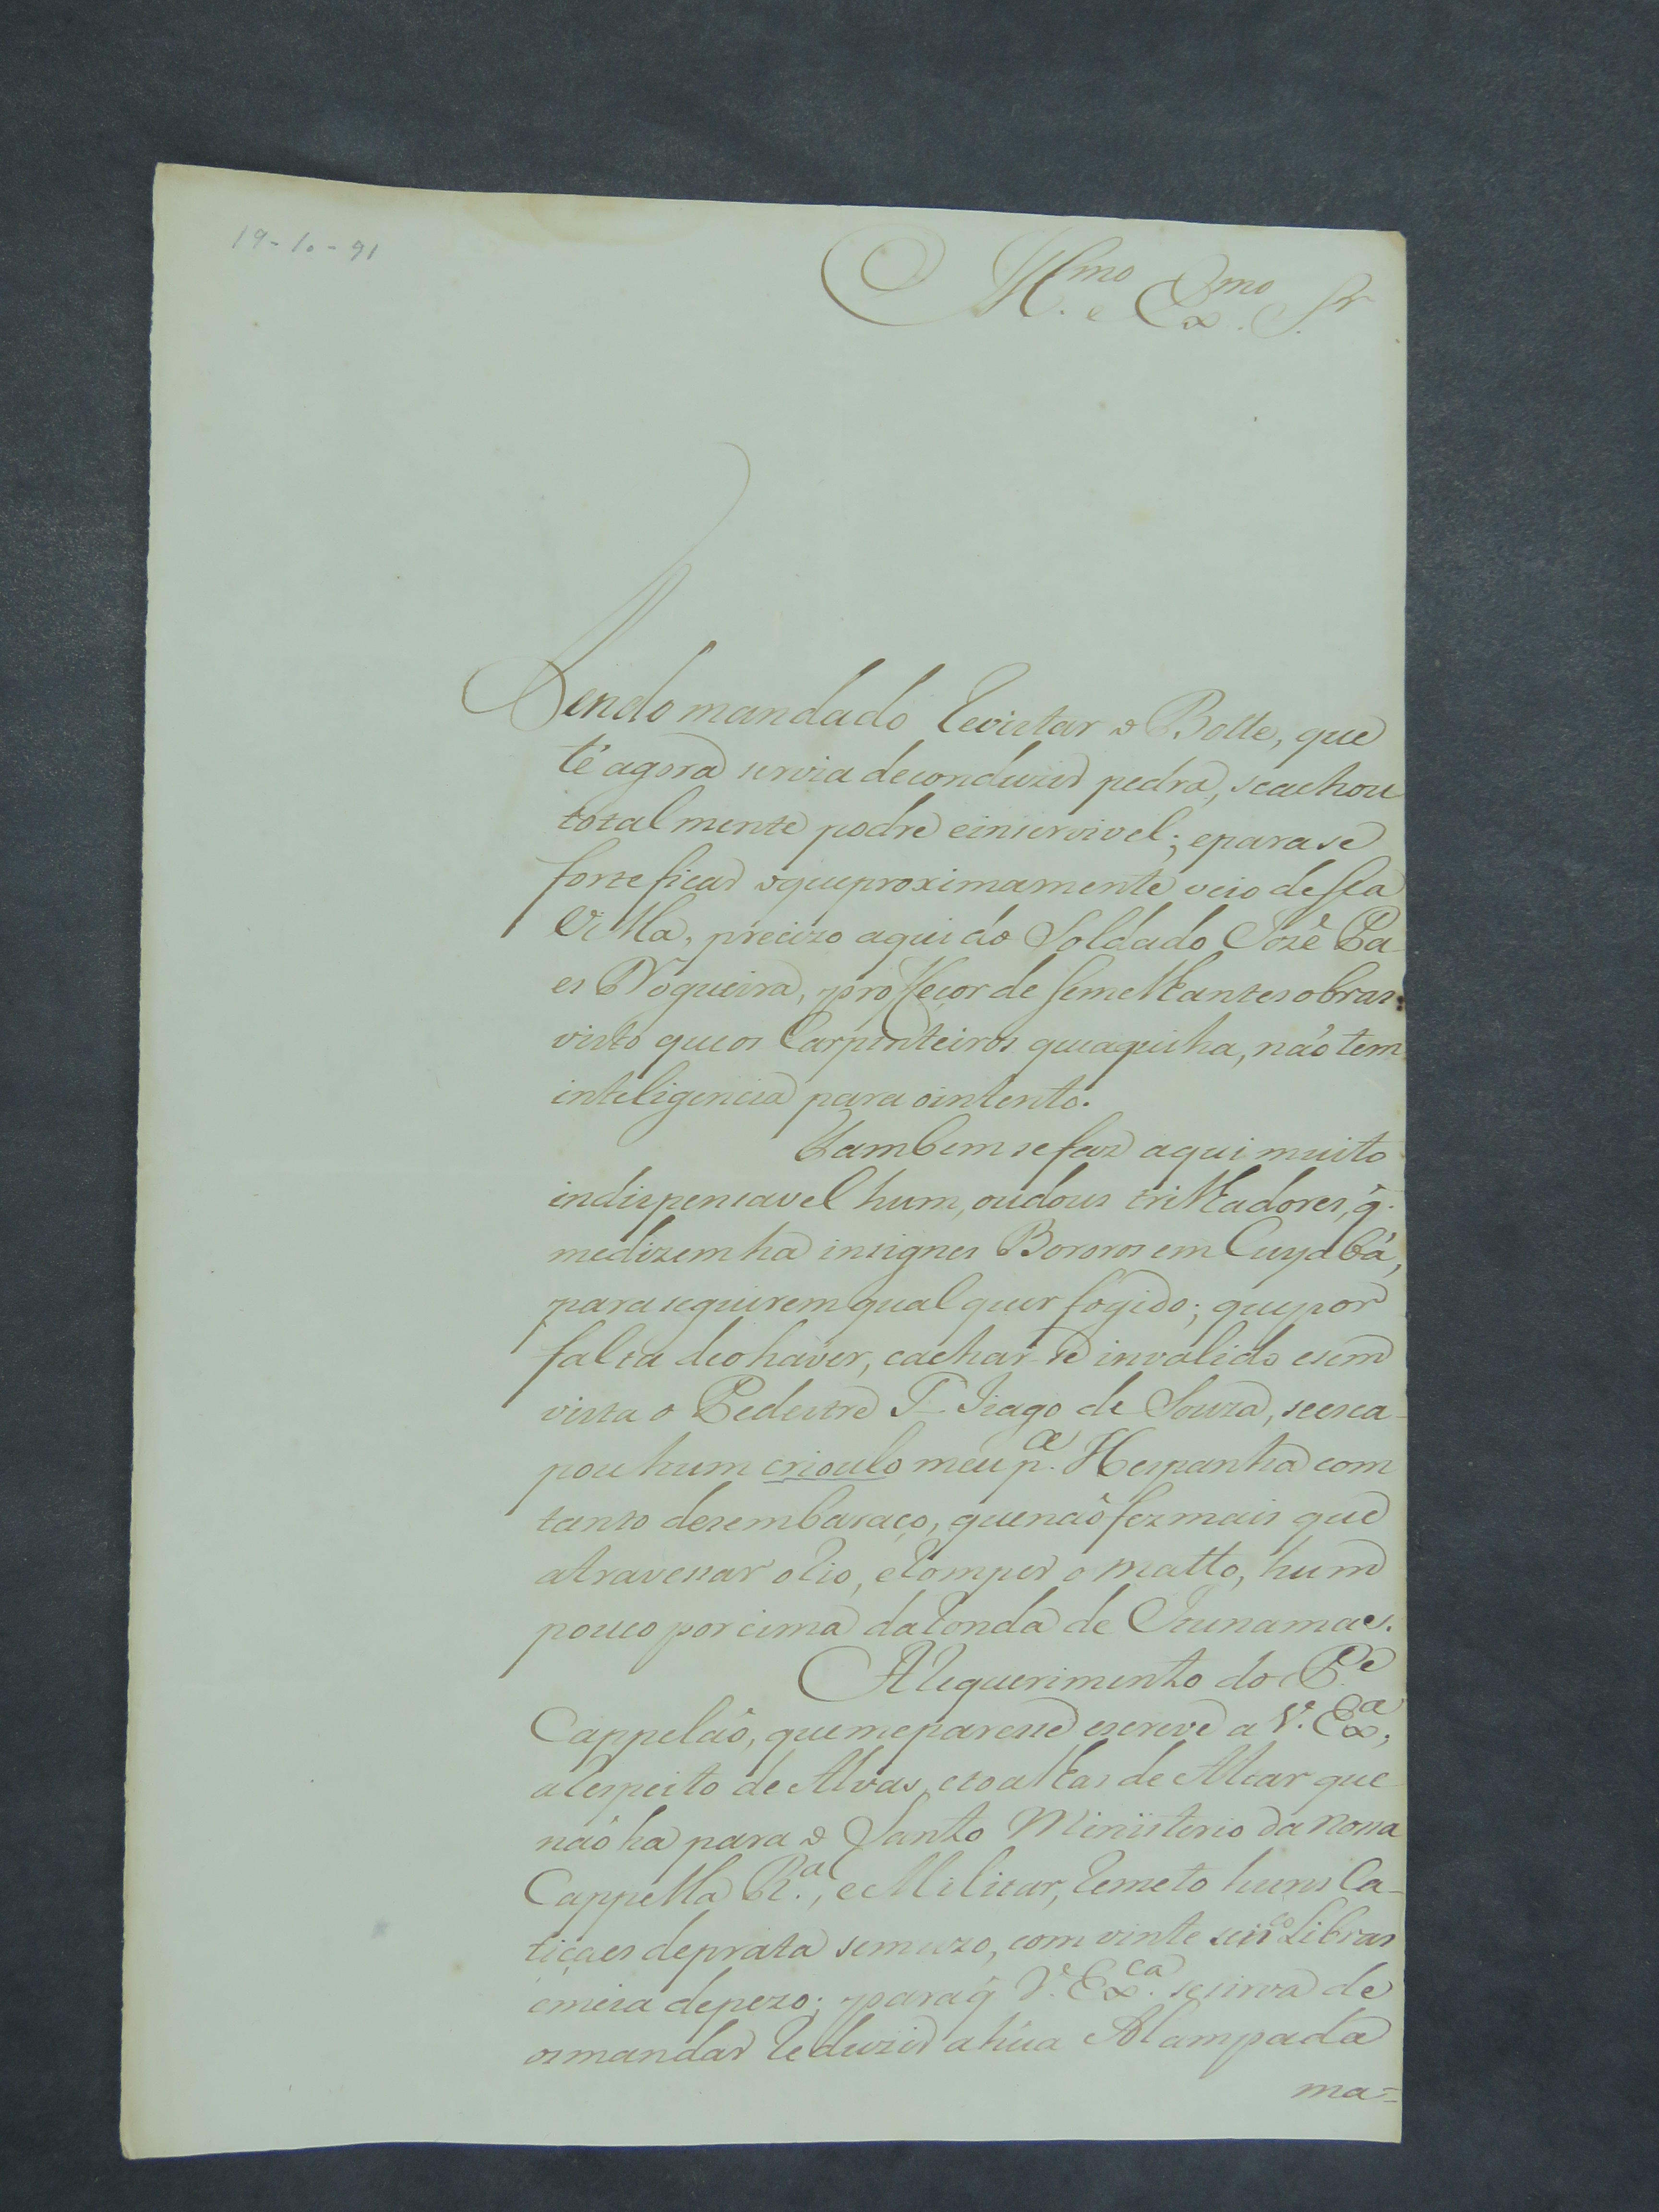 19-10-91
Ill.mo e Ex.mo Sr.
Sendo mandado Revistar o Botte, que
té agora servia deconduzir pedra, seachou
totalmente podre einservivel; eparase
forteficar oqueproximamente veio dessa
Villa, precizo aqui do Soldado Jozê Pa-
es Nogueira, professor de semelhantes obras:
visto queos Carpinteiros queaquiha, não tem
inteligencia para ointento.
Tambem sefaz aqui muito
indispensavel hum, oudous trilhadores, q.
medizem ha insignes Bororos em Cuyabá,
para seguirem qualquer fogido; que por
falta deohaver, eachar-se invalido esem
vista o Pedestre Tiago de Souza, seesca-
pou hum crioulo meu p.a Hespanha com
tanto desembaraço, quenão fez mais que
atravessar oRio, eRomper o matto, hum
pouco por cima daRonda de Itunamas.
A Requerimento do P.e
Cappelão, quemeparesse escreve a V. Ex.a,
aRespeito de Alvas, etoalhas de Altar que
não ha para o Santo Ministerio da nossa
Cappella R.al, e Militar, Remeto huns Ca-
ticaes deprata semuzo, com vinte seis Libras
emeia depezo; paraq̃ V. Ex.ca sesirva de
osmandar Reduzir ahũa Alampada
ma=